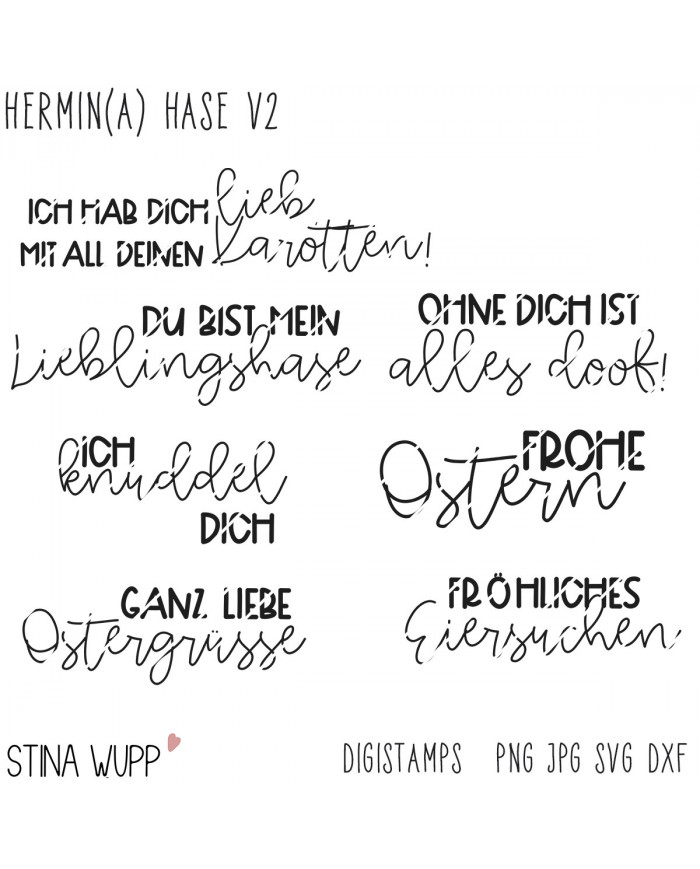 HERMIN(A) HASE V2
ICH HAB DICH lieb
MIT ALL DEINEN Karotten!
DU BIST MEIN
Lieblingshase
OHNE DICH IST
alles doof!
ICH
knuddel
DICH
FROHE
Ostern
GANZ LIEBE
Ostergrüsse
FRÖHLICHES
Eiersuchen
STINA WUPP
DIGISTAMPS PNG JPG SVG DXF